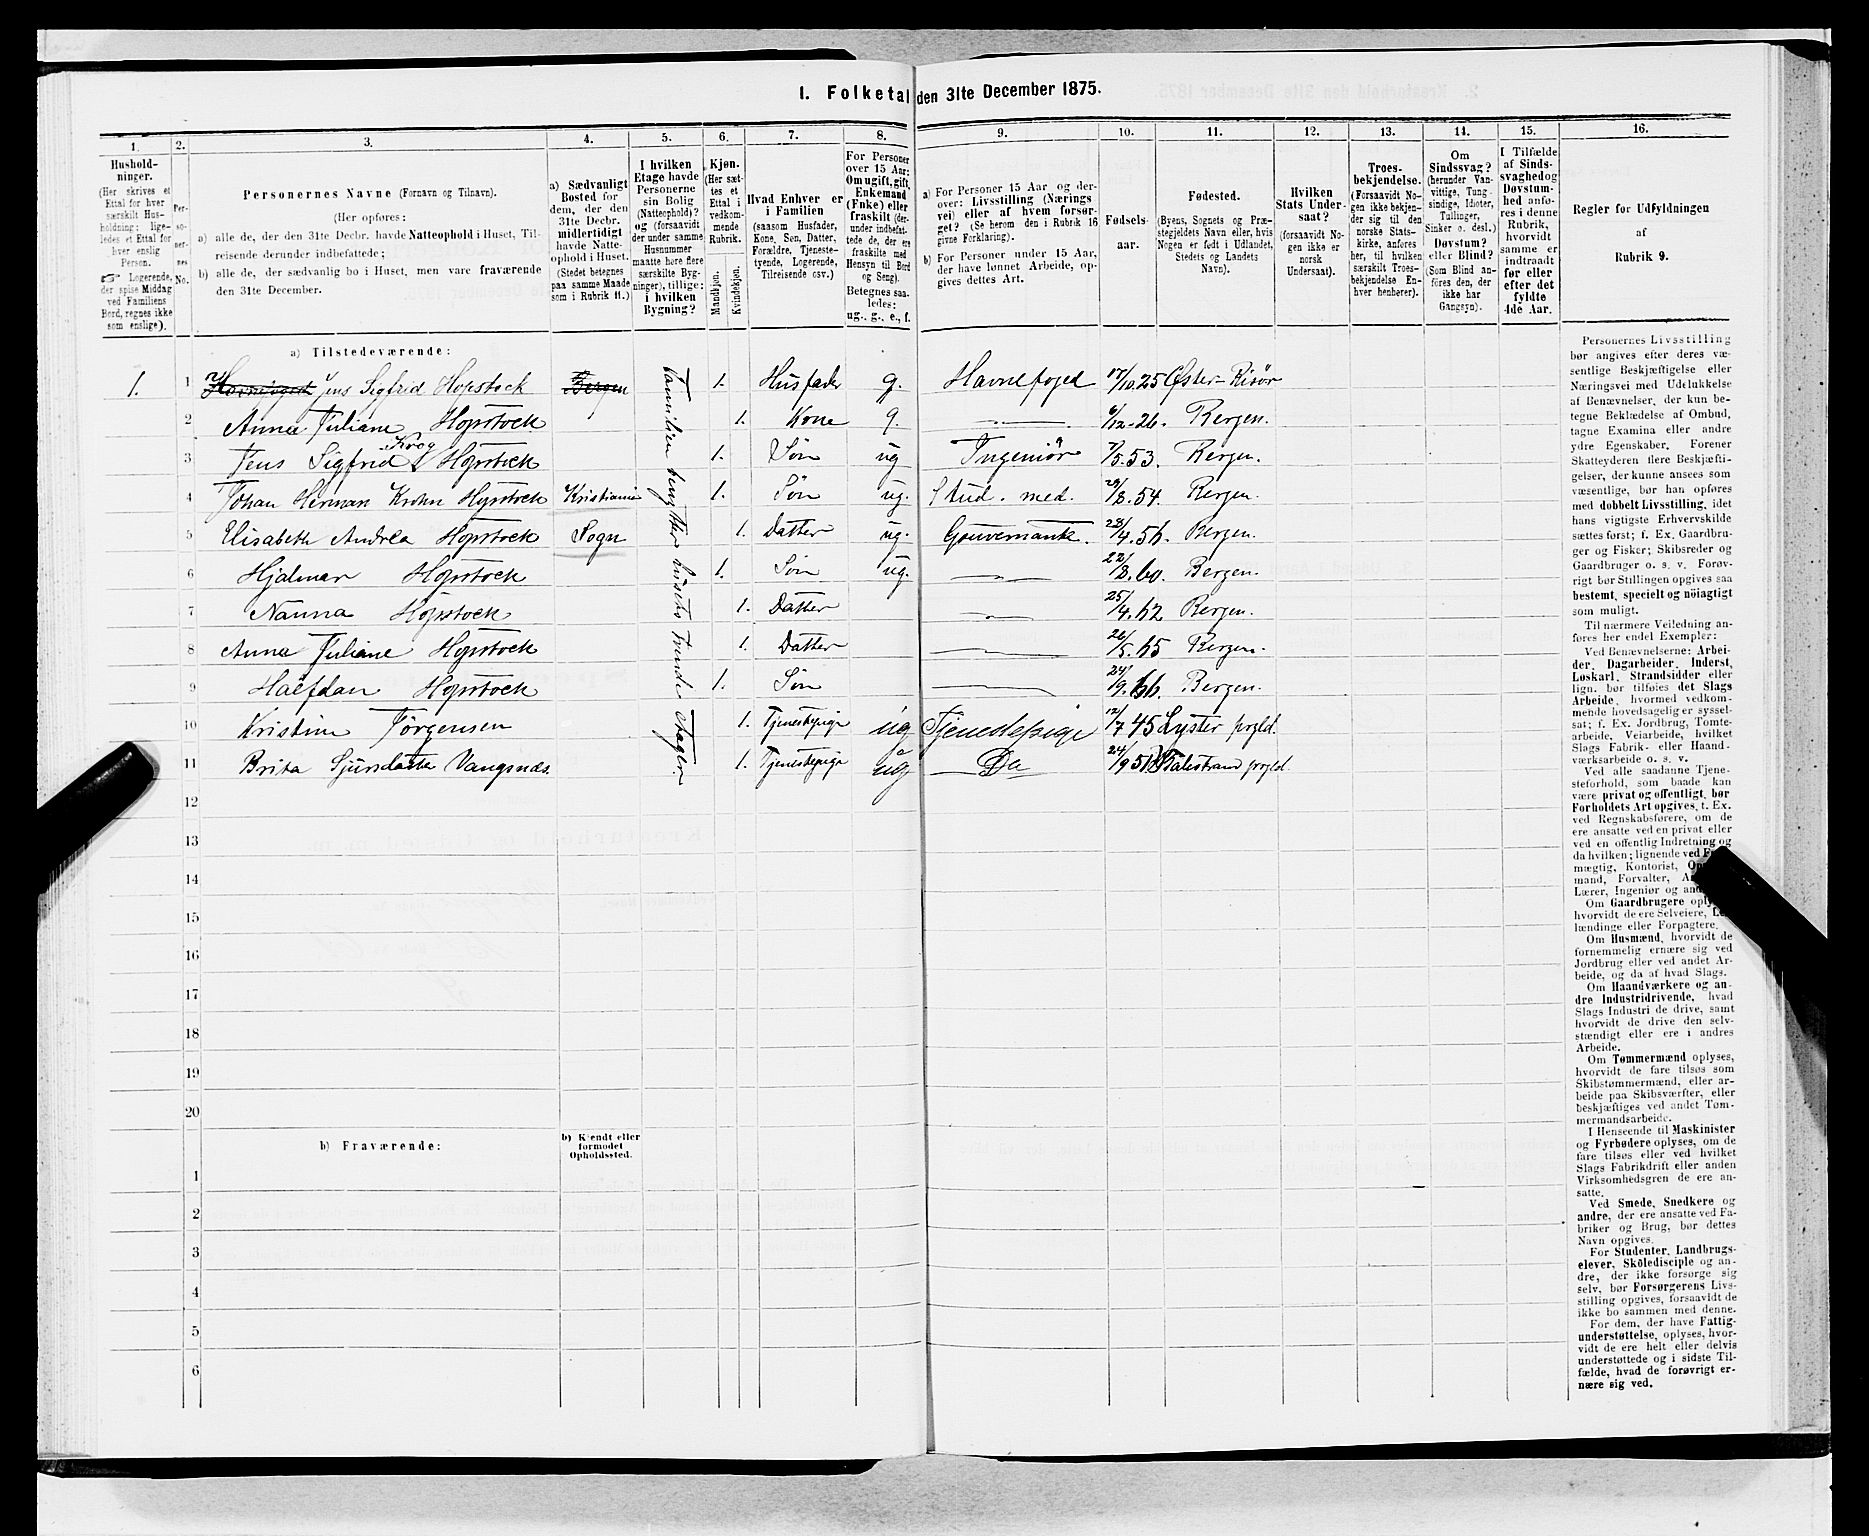 1. Folketal den 31te December 1875.
1.
Hushold-
ninger.
(Her skrives et
Ettal for hver
særskilt Hus-
holdning; lige-
ledes et Ettal for
hver enslig
Person.
☞ Logerende,
der spise Middag
ved Familiens
Bord, regnes ikke
som enslige).
2.
Per-
so-
ner-
nes
No.
3.
Personernes Navne (Fornavn og Tilnavn).
(Her opføres:
a) alle de, der den 31te Decbr. havde Natteophold i Huset, Til-
reisende derunder indbefattede;
b) alle de, der sædvanlig bo i Huset, men vare fraværende
den 31te December.
4.
a) Sædvanligt
Bosted for
dem, der den
31te Decbr.
midlertidigt
havde Natte-
ophold i Huset.
(Stedet betegnes
paa samme Maade
som i Rubrik 11.)
5.
I hvilken
Etage havde
Personerne
sin Bolig
(Natteophold)?
og (forsaavidt
der under samme
Husnummer
maatte høre flere
særskilte Byg-
ninger), tillige:
i hvilken
Bygning?
6.
Kjøn.
(Her sæt-
tes et
Ettal i
vedkom-
mende
Rubrik.
Mandkjøn.
Kvindekjøn.
7.
Hvad Enhver er
i Familien
(saasom Husfader,
Kone, Søn, Datter,
Forældre, Tjeneste-
tyende, Logerende,
Tilreisende osv.)
8.
For Personer
over 15 Aar:
Om ugift, gift,
Enkemand
(Enke) eller
fraskilt (der-
under indbefat-
tede de, der ere
fraskilte med
Hensyn til Bord
og Seng).
Betegnes saa-
ledes:
ug., g., e., f.
9.
a) For Personer 15 Aar og der-
over: Livsstilling (Nærings
vei) eller af hvem forsør-
get? (Se herom den i Rubrik 16
givne Forklaring).
b) For Personer under 15 Aar,
der have lønnet Arbeide, op-
gives dettes Art.
10.
Fødsels-
aar.
11.
Fødested.
(Byens, Sognets og Præ-
stegjeldets Navn eller, hvis
Nogen er født i Udlandet,
Stedets og Landets
Navn).
12.
Hvilken
Stats Under-
saat?
(forsaavidt No-
gen ikke er
norsk
Undersaat).
13.
Troes-
bekjendelse.
(Forsaavidt No-
gen ikke bekjen-
der sig til den
norske Stats-
kirke, anføres
her, til hvilken
særskilt Troes-
bekjendelse En-
hver henhører).
14.
Om
Sindssvag?
(herunder Van-
vittige, Tung-
sindige, Idioter,
Tullinger,
Sinker o. desl.)
Døvstum?
eller Blind?
(Som Blind an-
föres den, der
ikke har
Gangsyn).
15.
I Tilfælde
af Sinds-
svaghed og
Døvstum-
hed anfø-
res i denne
Rubrik,
hvorvidt
samme er
indtraadt
før eller
efter det
fyldte
4de Aar.
16.
Regler for Udfyldningen
af
Rubrik 9.
a) Tilstedeværende:
1. 1 Havnefoged Jens Sigfrid Hopstock Bergen 1. Husfader g. Havnefoged 17/10.25 Øster-Risør
2 Anna Juliane Hopstock 1. Kone g. 6/12.26. Bergen.
3 Jens Sigfrid Krog Hopstock 1. Søn ug Ingeniør 7/5.53. Bergen.
4 Johan Herman Krohn Hopstock Kristiania 1. Søn ug. Stud. med. 28/8.54. Bergen.
5 Elisabeth Andrea Hopstock Sogn 1. Datter ug. Gouvernante. 28/4.56. Bergen.
6 Hjalmar Hopstock 1. Søn ug. 22/8.60. Bergen.
7 Nanna Hopstock 1. Datter 25/4.62 Bergen.
8 Anna Juliane Hopstock 1. Datter 26/5.65 Bergen.
9 Halfdan Hopstock 1. Søn 24/9.66. Bergen.
10 Kristine Jörgensen 1. Tjenestepige ug Tjenestepige 12/7 45 Lyster prgld.
11 Brita Sjursdatter Vangsnæs. 1. Tjenestepige ug Do 24/9 51 Balestrand prgld.
Familien benytter husets trende etager.
12
13
14
15
16
17
18
19
20
b) Fraværende:
b) Kjendt eller
formodet
Opholdssted.
1
2
3
4
5
6
Personernes Livsstilling
bør angives efter deres væ-
sentlige Beskjæftigelse eller
Næringsvei med Udelukkelse
af Benævnelser, der kun be-
tegne Beklædelse af Ombud,
tagne Examina eller andre
ydre Egenskaber. Forener
Skatteyderen flere Beskjæfti-
gelser, der kunne ansees som
væsentlige, bør han opføres
med dobbelt Livsstilling, idet
hans vigtigste Erhvervskilde
sættes først; f. Ex. Gaardbru-
ger og Fisker; Skibsreder og
Gaardbruger o. s. v. Forøv-
rigt bør Stillingen opgives saa
bestemt, specielt og nöiagtigt
som muligt.
Til nærmere Veiledning an-
føres her endel Exempler:
Ved Benævnelserne: Arbei-
der, Dagarbeider, Inderst,
Løskarl, Strandsidder eller
lign. bør tilføies det Slags
Arbeide, hvormed vedkom-
mende hovedsagelig er syssel-
sat; f. Ex. Jordbrug, Tomte-
arbeide, Veiarbeide, hvilket
Slags Fabrik- eller Haand-
værksarbeide o. s. v.
Ved alle saadanne Tjene-
steforhold, som baade kan
være privat og offentligt, bør
Forholdets Art opgives, t. Ex.
ved Regnskabsførere, om de
ere ansatte ved en privat eller
ved en offentlig Indretning og
da hvilken; lignende ved
mægtig, Kontorist,
mand, Forvalter,
Lærer, Ingeniør og
Om Gaardbrugere
hvorvidt de ere Selveiere,
lændinge eller Forpagtere.
Om Husmænd, hvorvidt de
fornemmelig ernære sig ved
Jordbrug eller ved andet Ar-
beide, og da af hvad Slags.
Om Haandværkere og an-
dre Industridrivende, hvad
Slags Industri de drive, samt
hvorvidt de drive den selv-
stændigt eller ere i andres
Arbeide.
Om Tømmermænd oplyses,
hvorvidt de fare tilsøs som
Skibstømmermænd, eller ar-
beide paa Skibsværfter, eller
beskjæftiges ved andet Tøm-
mermandsarbeide.
I Henseende til Maskinister
og Fyrbødere oplyses, om de
fare tilsøs eller ved hvilket
Slags Fabrikdrift eller anden
Virksomhedsgren de ere an-
satte.
Ved Smede, Snedkere og
andre, der ere ansatte ved Fa-
briker og Brug, bør dettes
Navn opgives.
For Studenter, Landbrugs-
elever, Skoledisciple og an-
dre, der ikke forsørge sig
selv, bør Forsørgerens Livs-
stilling opgives, forsaavidt de
ikke bo sammen med denne.
For dem, der have Fattig-
understøttelse, oplyses, hvor-
vidt de ere helt eller delvis
understøttede og i sidste Til-
fælde, hvad de forøvrigt er-
nære sig ved.